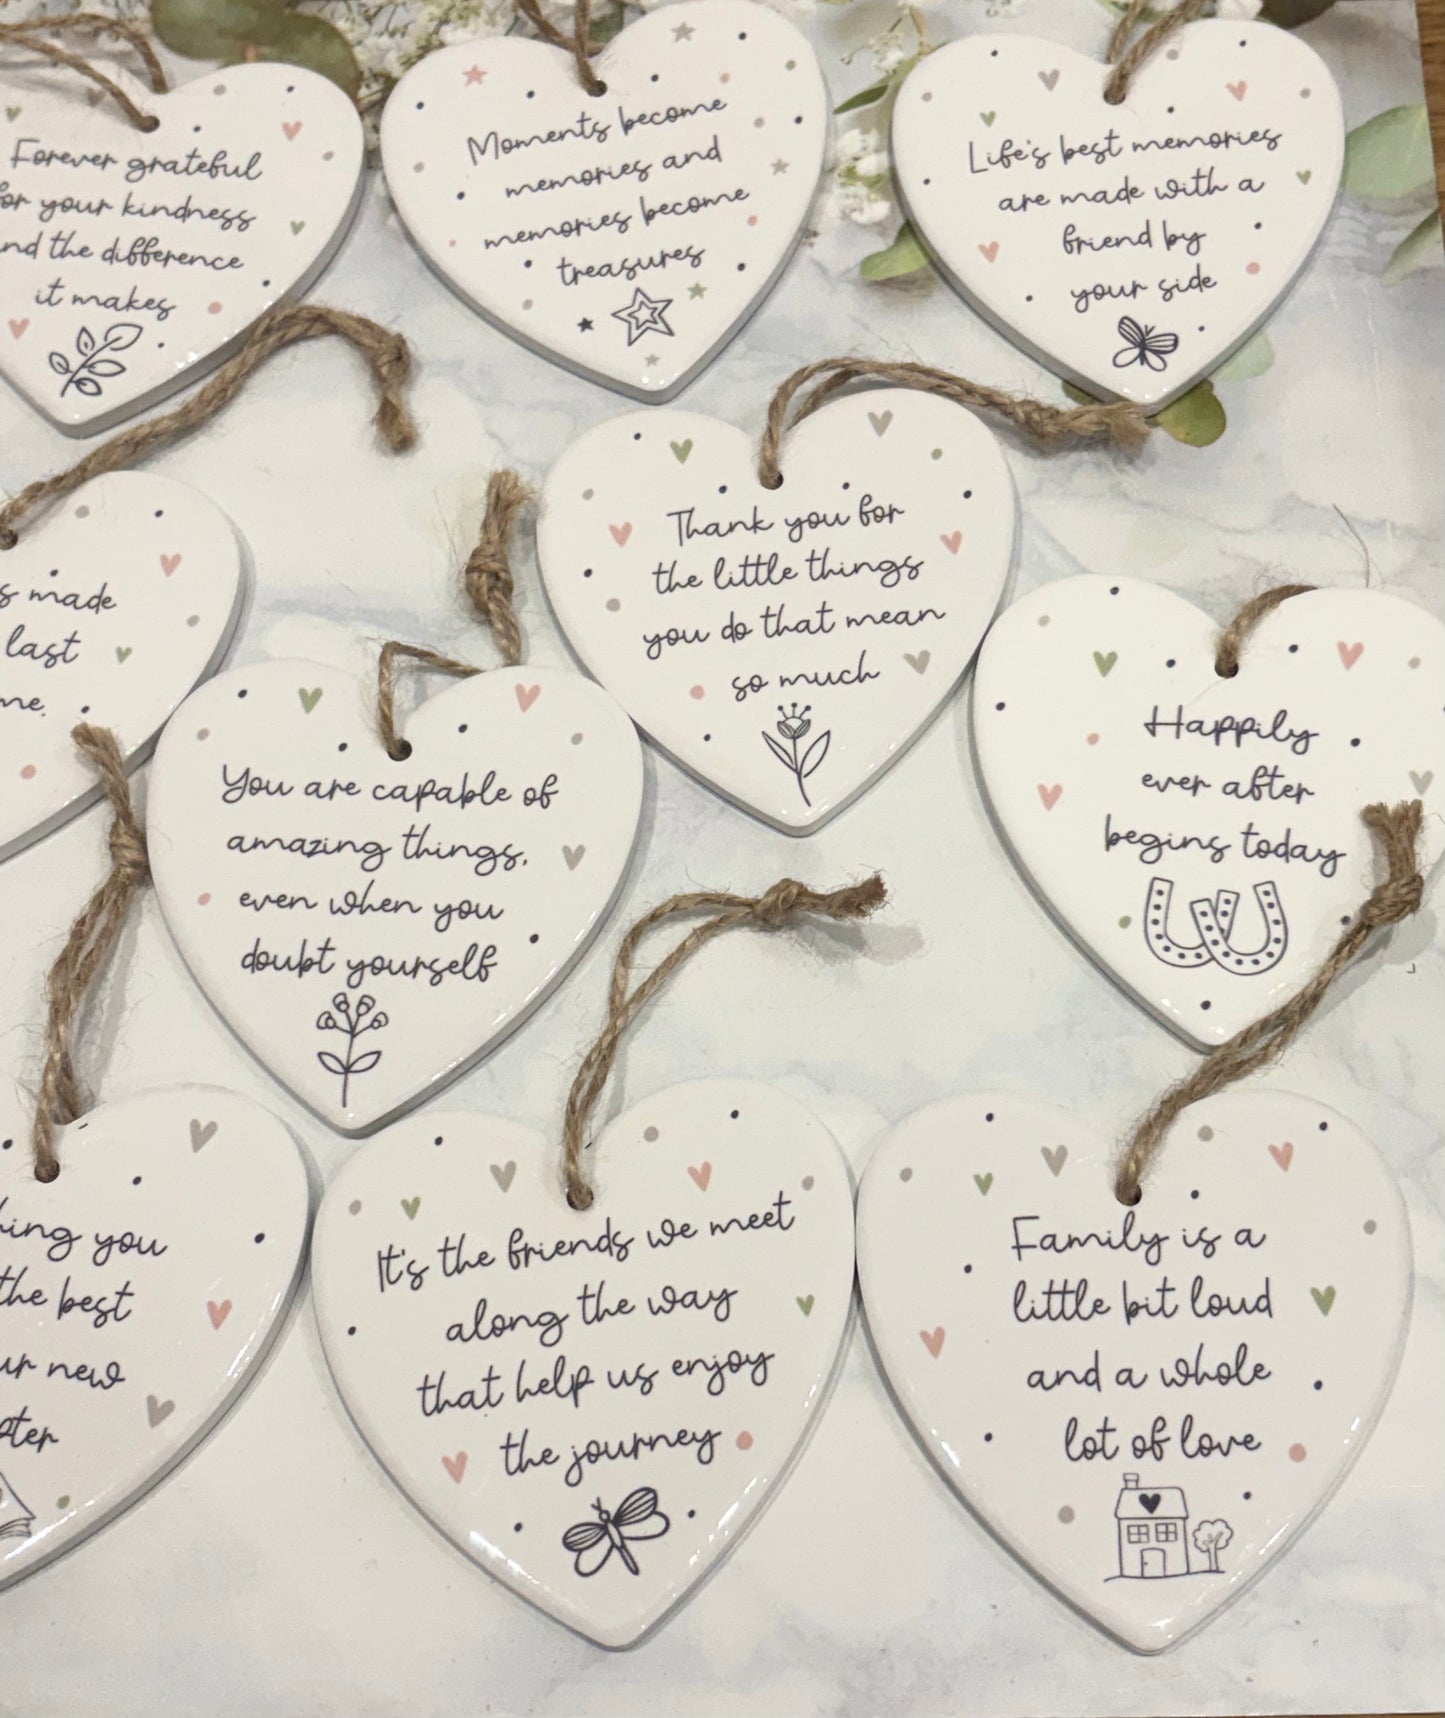 Forever grateful
for your kindness
and the difference
it makes
Moments become
memories and
memories become
treasures
Life's best memories
are made with a
friend by
your side
made
last
Thank you for
the little things
you do that mean
so much
You are capable of
amazing things,
even when you
doubt yourself
Happily
ever after
begins today
you
the best
new
It's the friends we meet
along the way
that help us enjoy
the journey
Family is a
little bit loud
and a whole
lot of love